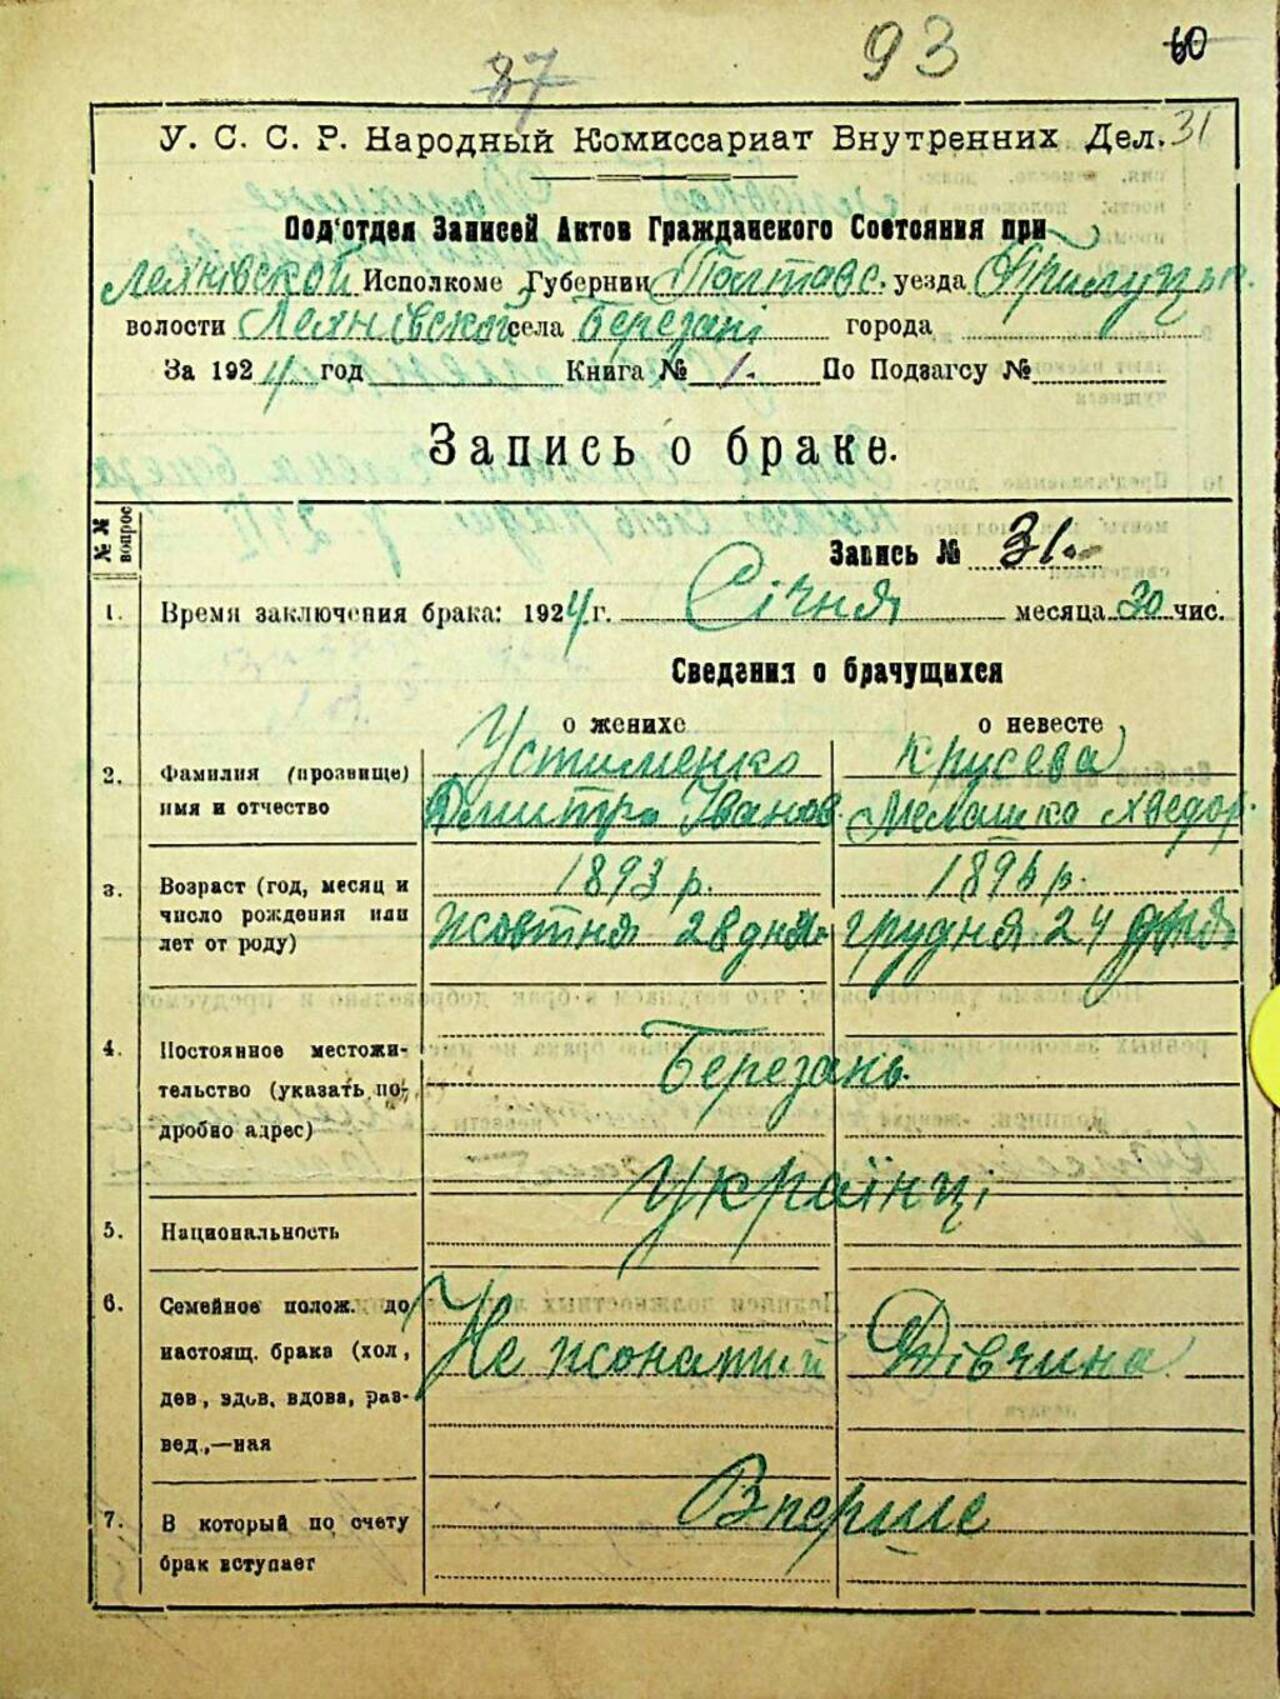 87 93 60
У. С. С. Р. Народный Комиссариат Внутренних Дел. 31
Под'отдел Записей Актов Гражданского Состояния при
Лехнівской Исполкоме Губернии Полтавс. уезда Прилуцьк.
волости Лехнівской села Березані города
За 1924 год Книга № 1. По Подзагсу №
Запись о браке.
№ № вопрос
Запись № 31.
1. Время заключения брака: 1924 г. Січня месяца 30 чис.
Сведения о брачущихся
о женихе о невесте
2. Фамилия (прозвище) Устименко Крусева
имя и отчество Дмитро Іванов. Мелашка Хведор.
3. Возраст (год, месяц и 1893 р. 189 р.
число рождения или Жовтня 28 дня грудня 24 дня
лет от роду)
4. Постоянное местожи-
тельство (указать по- Березань.
дробно адрес)
Українці
5. Национальность
6. Семейное полож. до
настоящ. брака (хол., Не жонатий Дівчина
дев., вдов, вдова, раз-
вед.,—ная
7. В который по счету Вперше
брак вступает